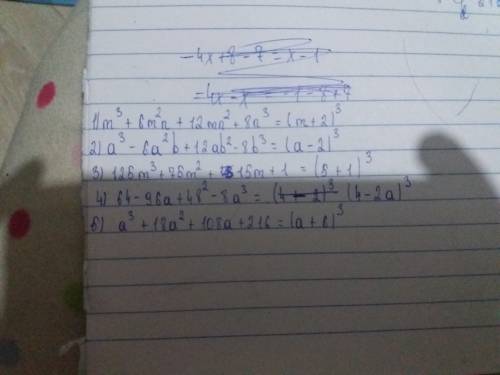 -4x+8-7=x-1
=4x-x = -1-8+7
1) m³+6m²n+12mn²+8n³=(m+2)³
2) a³-6a²b+12ab²-8b³=(a-2)³
3) 125m³+75m²+15m+1=(5+1)³
4) 64-96a+48²-8a³=(4-2)³ (4-2a)³
5) a³+18a²+108a+216=(a+6)³